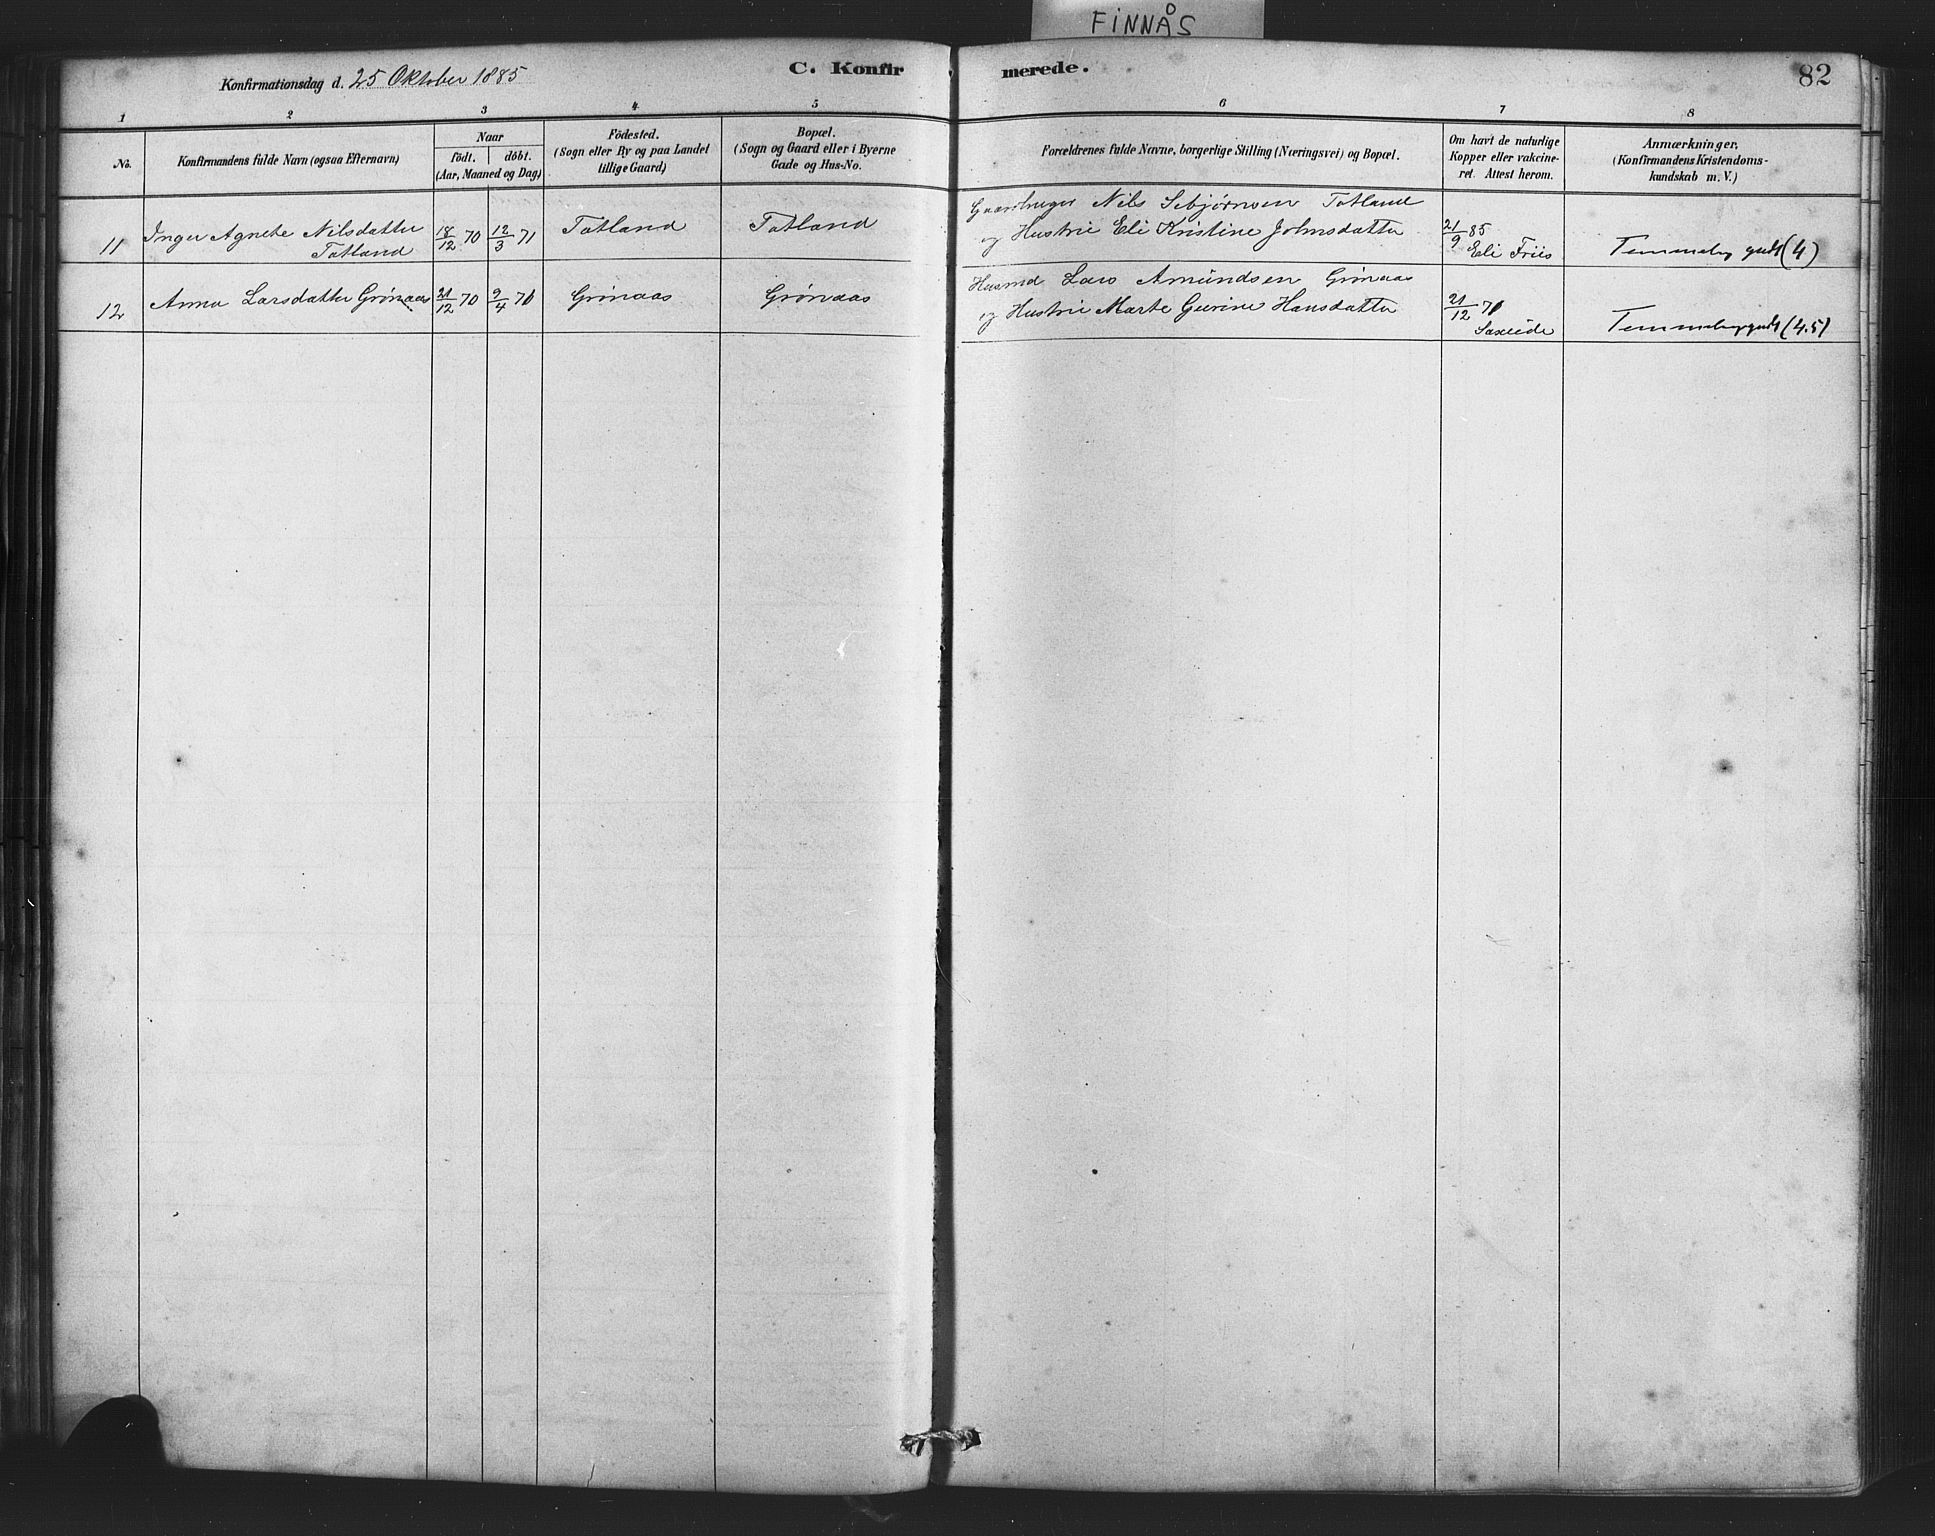 FINNÅS
Konfirmationsdag d. 25 Oktober 1885
C. Konfir merede.
82
1 2 3 4 5 6 7 8
No.
Konfirmandens fulde Navn (ogsaa Efternavn)
Naar
födt. döbt.
(Aar, Maaned og Dag)
Födested.
(Sogn eller By og paa Landet
tillige Gaard)
Bopæl.
(Sogn og Gaard eller i Byerne
Gade og Hus-No.
Forældrenes fulde Navne, borgerlige Stilling (Næringsvei) og Bopæl.
Om havt de naturlige
Kopper eller vakcine-
ret. Attest herom.
Anmærkninger,
(Konfirmandens Kristendoms-
kundskab m. V.)
11 Inger Agnete Nilsdatter
Totland
18/12 70 12/3 71 Totland Totland
Gaardbruger Nils Sebjørnsen Totland
og Hustrie Eli Kristine Johnsdatter
21/9 85
Eli Friis
Temmelig godt (4)
12 Anna Larsdatter Grönaas 21/12 70 9/4 71 Grönaas Grönaas
Husmd Lars Amundsen Grönaas
og Hustrie Marte Gurine Hansdatter
21/12 71
Saxeide
Temmelig godt (4.5)